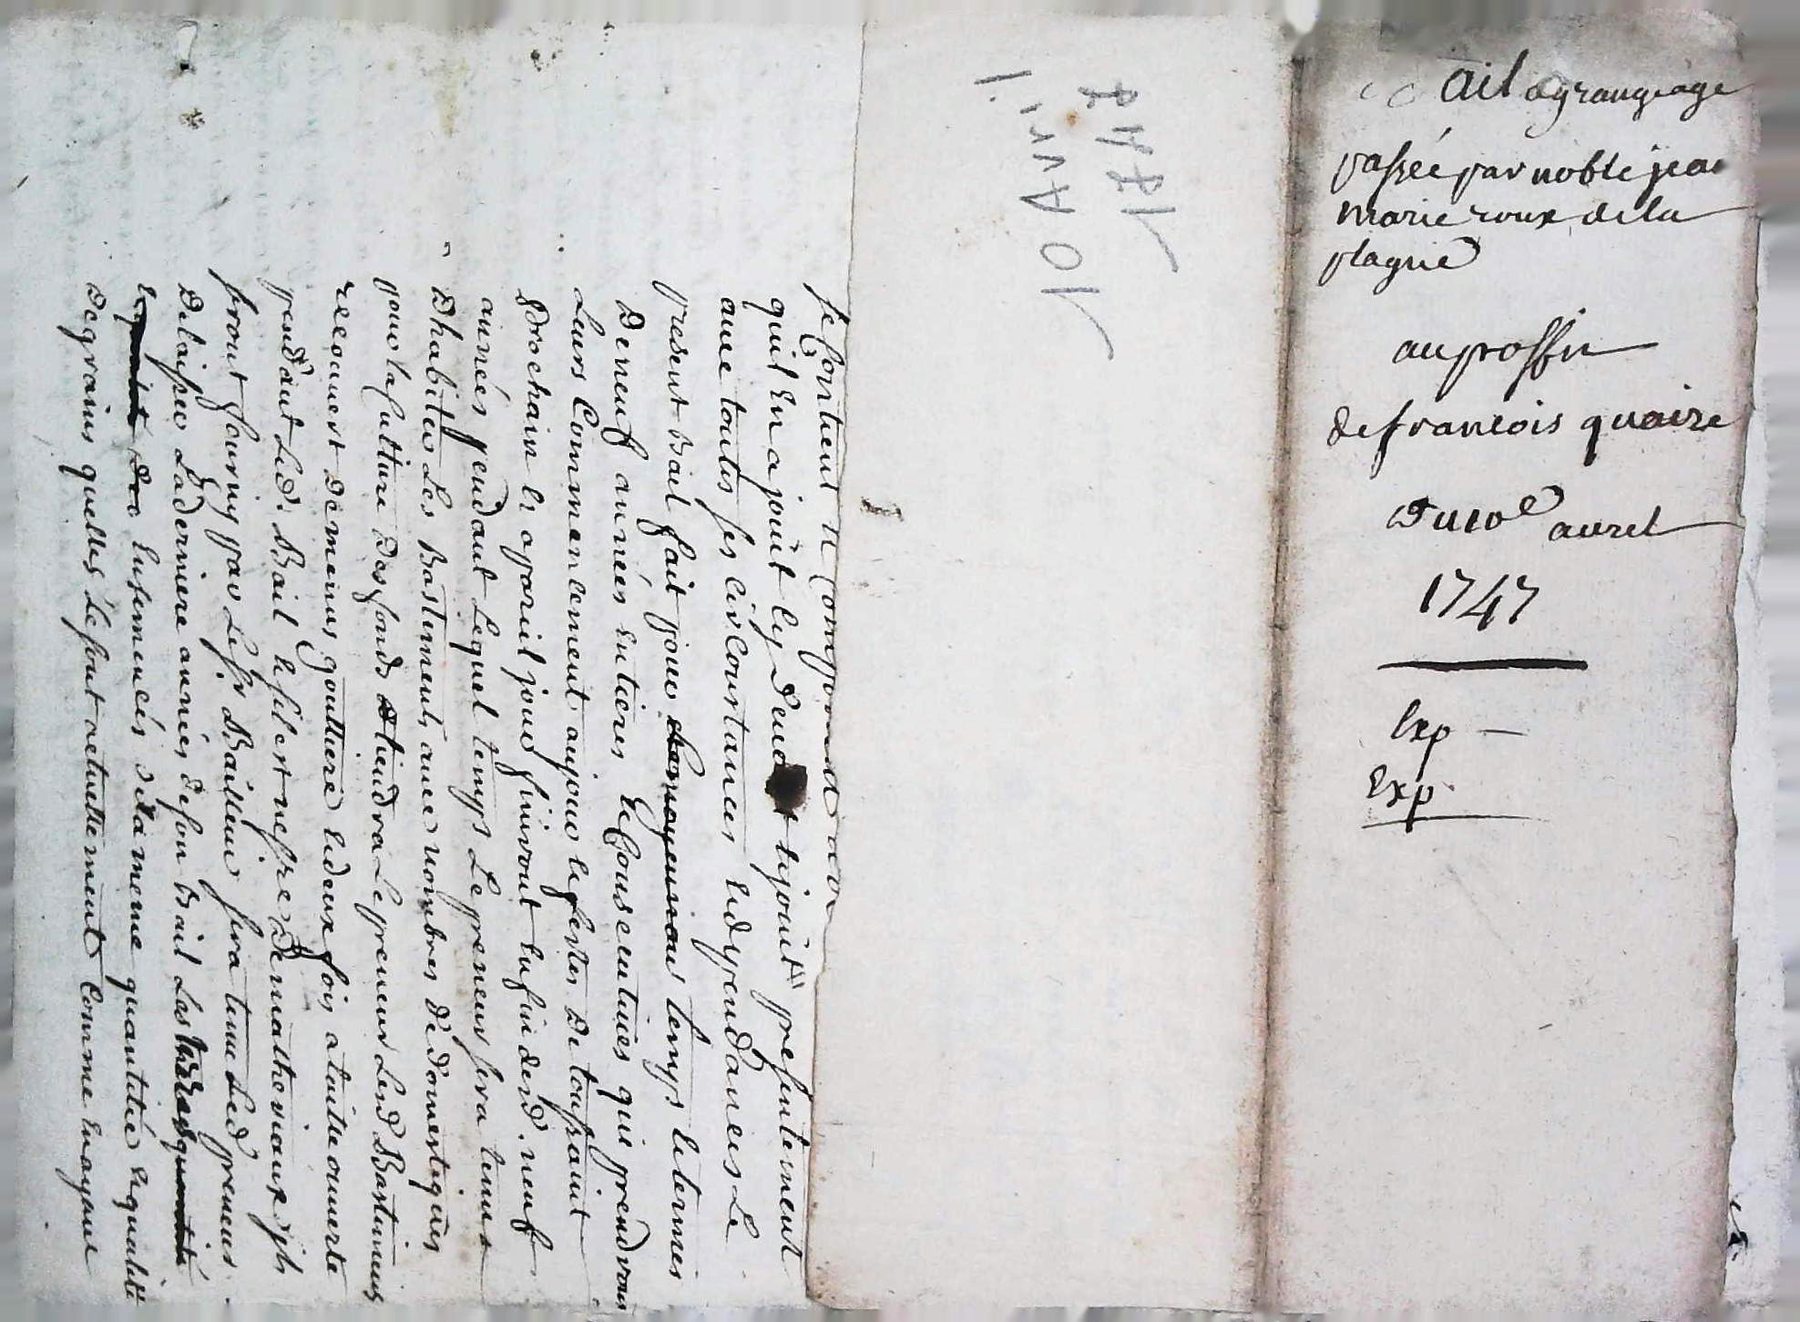 ail a grangeage
passée par noble jean
marie roux de la
plagne
au proffit
de francois quaire
Du 10e avril
1747
Exp
Exp
10 Avril
1747
se Contient et
qu'il En a joüit les et joüit presentement
avec toutes ses circonstances et dependances Le
present bail fait pour temps et termes
De neuf années entieres et Consecutives qui prendront
Leurs Commencement aujour et festes De toussaint
prochain et a pareil jour finiront En fin desd. neuf
années pendant Lequel temps Le preneur sera tenu
D'habiter Les Bastiments avec nombres de domestiques
pour la Cultture Des fonds tiendra Le preneur Lesd Bastiments
recouvert De menus gouttiere et deux fois a tuille ouverte
pendant Led. Bail et s'il est nessre De matheriaux ils
seront fourny par Le Sr Bailleur sera tenu Led preneur
De laisser La derniere année de son bail Les terres
Ensemencés De la meme quantitté et qualité
De grains quelles Le sont actuellement Comme En ayant